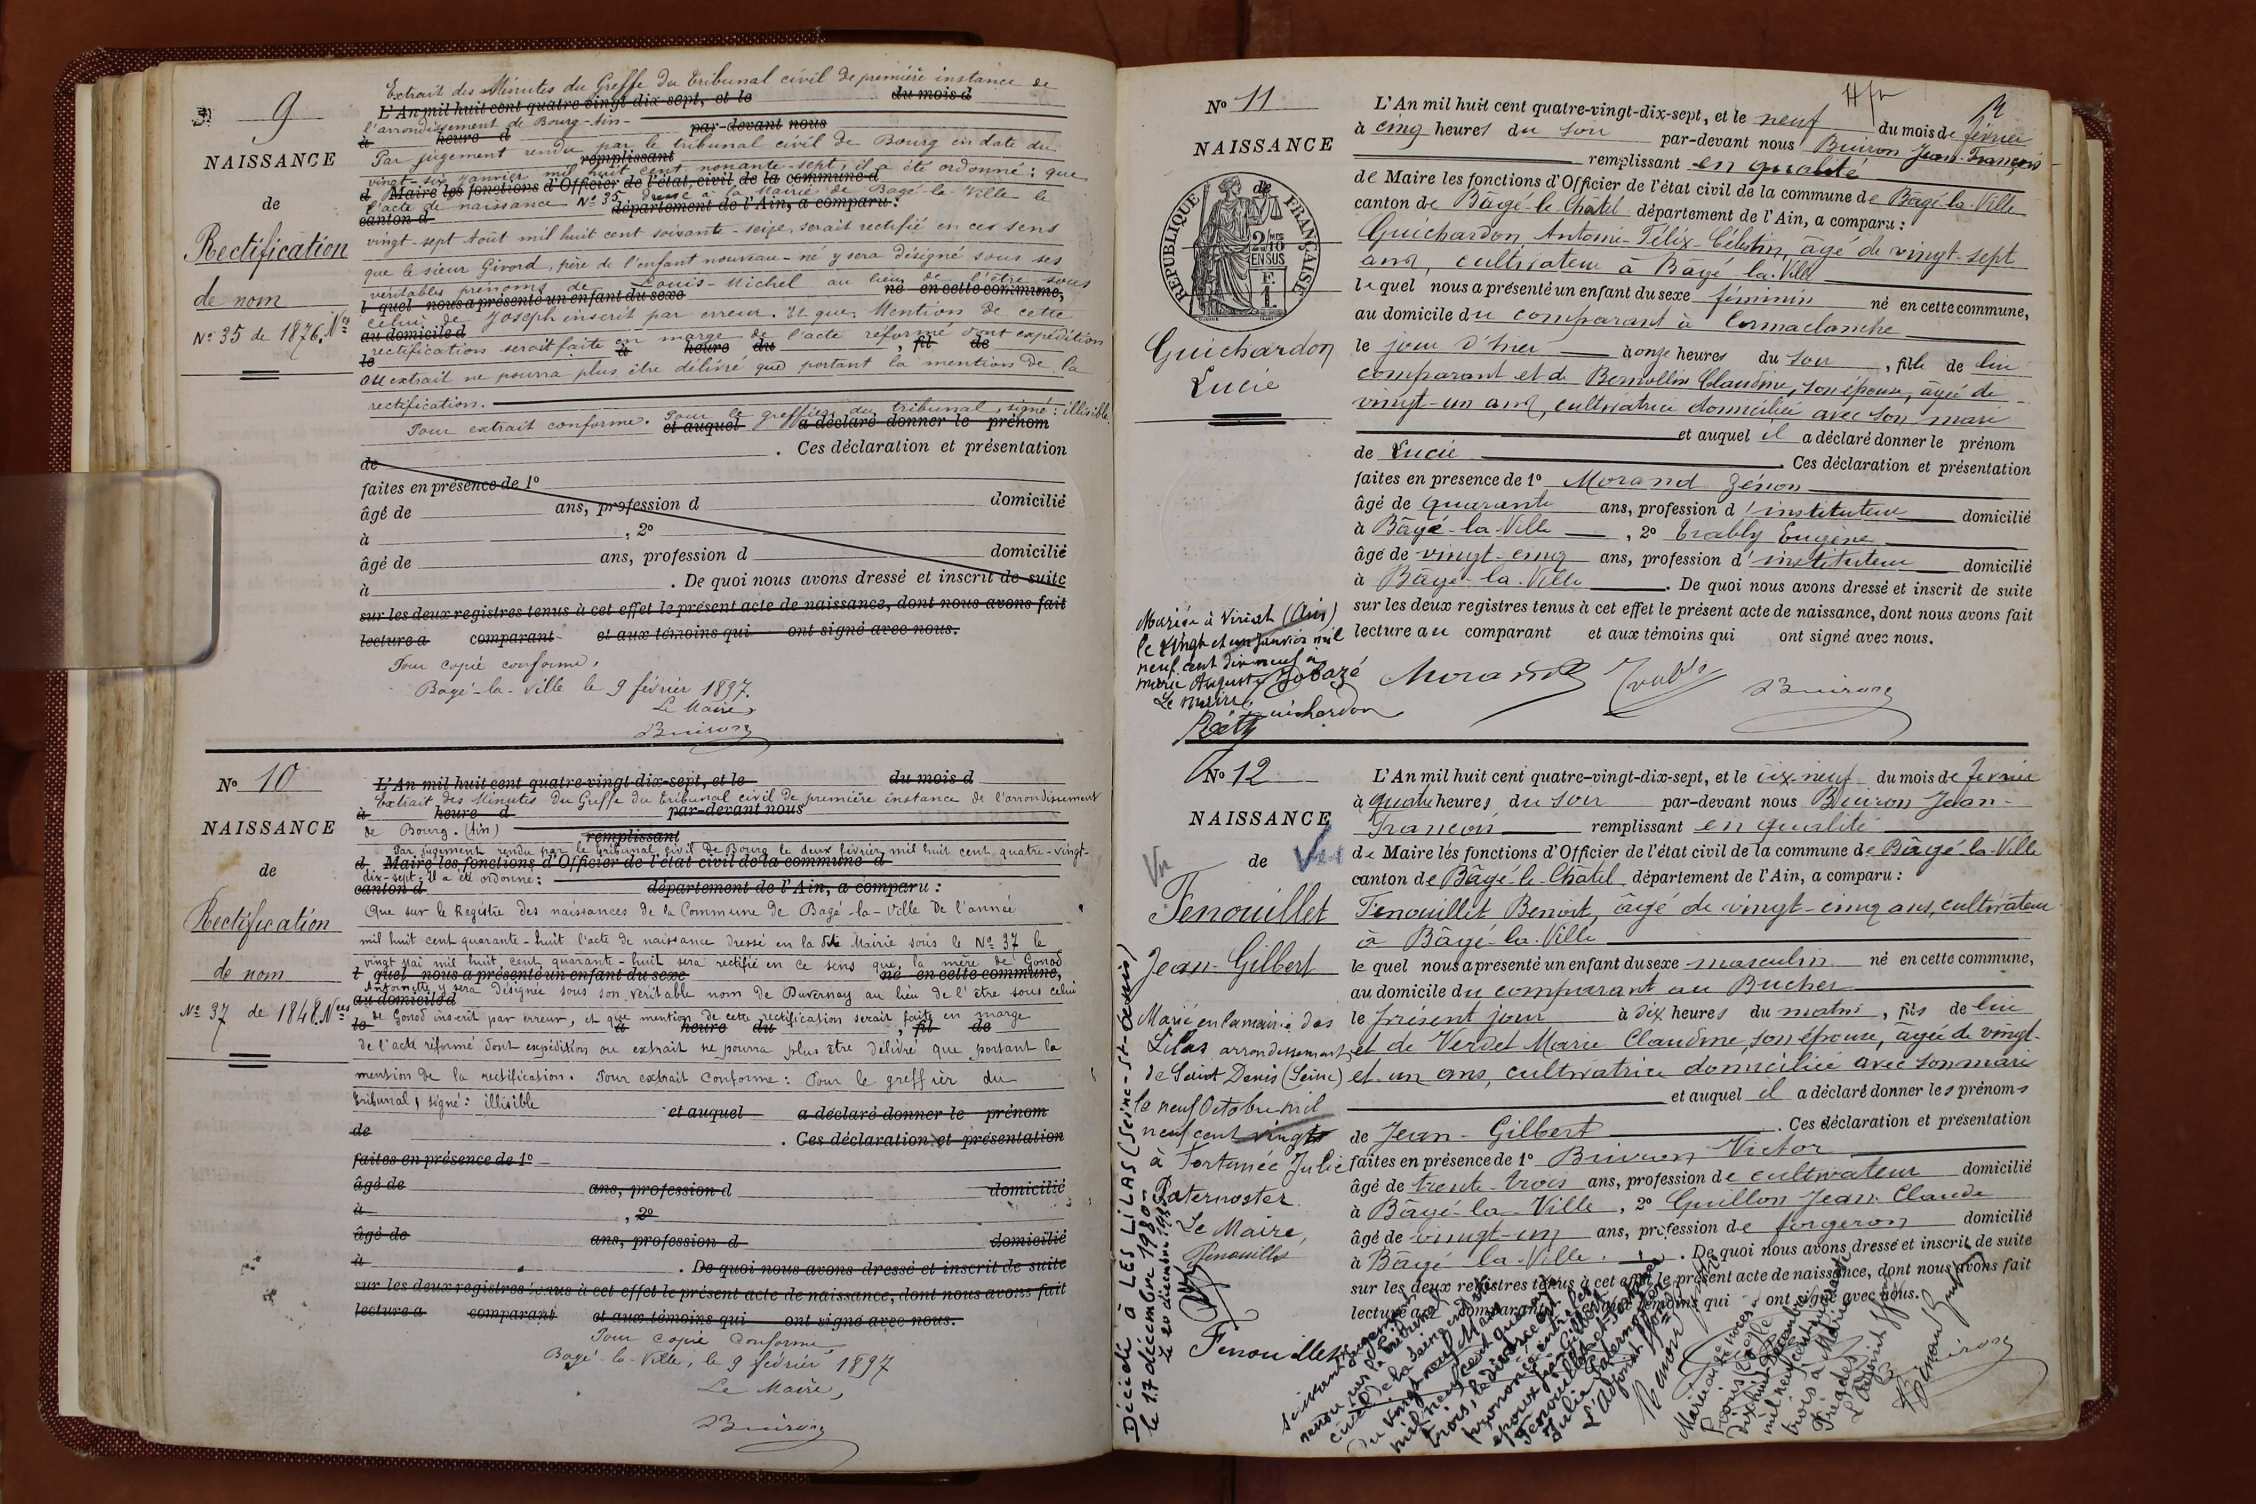 9
NAISSANCE
de
Rectification
de nom
Nº 35 de 1876. Nces
Extrait des Minutes du Greffe du tribunal civil de première instance de
L'An mil huit cent quatre-vingt-dix-sept, et le du mois d
l'arrondissement de Bourg-Ain-
par-devant nous
à heure d
Par jugement rendu par le tribunal civil de Bourg en date du
remplissant
vingt-six janvier mil huit cent nonante-sept, il a été ordonné : que
d Maire les fonctions d'Officier de l'état civil de la commune d
l'acte de naissance Nº 35 dressé à la Mairie de Bagé-le-Ville le
canton d département de l'Ain, a comparu :
vingt-sept Août mil huit cent soixante-seize, serait rectifié en ces sens
que le sieur Givord, père de l'enfant nouveau-né y sera désigné sous ses
véritables prénoms de Louis-Michel au lieu de l'être sous
l quel nous a présenté un enfant du sexe né en cette commune,
celui de Joseph inscrit par erreur. Et que Mention de cette
au domicile d
rectifications serait faite en marge de l'acte réformé dont expédition
le à heure du , fil de
ou extrait ne pourra plus être délivré que portant la mention de la
rectification.
Pour le greffier du tribunal, signé : illisible
Pour extrait conforme. et auquel a déclaré donner le prénom
de . Ces déclaration et présentation
faites en présence de 1º
âgé de ans, profession d domicilié
à , 2º
âgé de ans, profession d domicilié
à . De quoi nous avons dressé et inscrit de suite
sur les deux registres tenus à cet effet le présent acte de naissance, dont nous avons fait
lecture a comparant et aux témoins qui ont signé avec nous.
Pour copie conforme,
Bagé-la-Ville le 9 février 1897.
Le Maire,
Buiron
Nº 10
NAISSANCE
de
Rectification
de nom
Nº 37 de 1848. Nces
L'An mil huit cent quatre-vingt-dix-sept, et le du mois d
Extrait des Minutes du Greffe du tribunal civil de première instance de l'arrondissement
à heure d par-devant nous
de Bourg. (Ain)
remplissant
Par jugement rendu par le tribunal civil de Bourg le deux février mil huit cent quatre-vingt-
d Maire les fonctions d'Officier de l'état civil de la commune d
dix-sept, il a été ordonné :
canton d département de l'Ain, a comparu :
Que sur le Registre des naissances de la Commune de Bagé-la-Ville de l'année
mil huit cent quarante-huit l'acte de naissance dressé en la dite Mairie sous le Nº 37 le
vingt mai mil huit cent quarante-huit sera rectifié en ce sens que la mère de Gonod
l quel nous a présenté un enfant du sexe né en cette commune,
Antoinette y sera désignée sous son véritable nom de Duvernay au lieu de l'être sous celui
au domicile d
de Gonod inscrit par erreur, et que mention de cette rectification serait faite en marge
le à heure du , fil de
de l'acte réformé dont expédition ou extrait ne pourra plus être délivré que portant la
mention de la rectification. Pour extrait conforme : Pour le greffier du
tribunal, signé : illisible et auquel a déclaré donner le prénom
de . Ces déclaration et présentation
faites en présence de 1º
âgé de ans, profession d domicilié
à , 2º
âgé de ans, profession d domicilié
à . De quoi nous avons dressé et inscrit de suite
sur les deux registres tenus à cet effet le présent acte de naissance, dont nous avons fait
lecture a comparant et aux témoins qui ont signé avec nous.
Pour copie conforme
Bagé-la-Ville, le 9 février 1897
Le Maire,
Buiron
Nº 11
NAISSANCE
de
RÉPUBLIQUE FRANÇAISE
2/10
EN SUS
Guichardon
Lucie
L'An mil huit cent quatre-vingt-dix-sept, et le neuf du mois de février
à cinq heures du soir par-devant nous Buiron Jean-François
remplissant en qualité
de Maire les fonctions d'Officier de l'état civil de la commune de Bâgé-la-Ville
canton de Bâgé-le-Châtel département de l'Ain, a comparu :
Guichardon, Antoine-Félix-Célestin, âgé de vingt-sept
ans, cultivateur à Bâgé-la-Ville
lequel nous a présenté un enfant du sexe féminin né en cette commune,
au domicile du comparant à Cormaclanche
le jour d'hier à onze heures du soir, fille de lui
comparant et de Bernollin Claudine, son épouse, âgée de
vingt-un ans, cultivatrice domiciliée avec son mari
et auquel il a déclaré donner le prénom
de Lucie . Ces déclaration et présentation
faites en présence de 1º Morand Zénon
âgé de quarante ans, profession d'instituteur domicilié
à Bâgé-la-Ville , 2º Trably Eugène
âgé de vingt-cinq ans, profession d'instituteur domicilié
à Bâgé-la-Ville . De quoi nous avons dressé et inscrit de suite
sur les deux registres tenus à cet effet le présent acte de naissance, dont nous avons fait
lecture au comparant et aux témoins qui ont signé avec nous.
Mariée à Viriat (Ain)
le vingt et un Janvier mil
neuf cent dix neuf à
Marie Auguste
Le maire,
Guichardon
Morand Trably Buiron
Nº 12
NAISSANCE
de
Vu
Fenouillet
Jean-Gilbert
L'An mil huit cent quatre-vingt-dix-sept, et le dix-neuf du mois de février
à quatre heures du soir par-devant nous Buiron Jean-
François remplissant en qualité
de Maire les fonctions d'Officier de l'état civil de la commune de Bâgé-la-Ville
canton de Bâgé-le-Chatel département de l'Ain, a comparu :
Fenouillet Benoit, âgé de vingt-cinq ans, cultivateur
à Bâgé-la-Ville
lequel nous a présenté un enfant du sexe masculin né en cette commune,
au domicile du comparant au Bucher
le présent jour à dix heures du matin, fils de lui
et de Verdet Marie Claudine, son épouse, âgée de vingt-
et-un ans, cultivatrice domiciliée avec son mari
et auquel il a déclaré donner les prénoms
de Jean-Gilbert . Ces déclaration et présentation
faites en présence de 1º Buiron Victor
âgé de trente-trois ans, profession de cultivateur domicilié
à Bâgé-la-Ville , 2º Guillon Jean-Claude
âgé de vingt-un ans, profession de forgeron domicilié
à Bâgé-la-Ville . De quoi nous avons dressé et inscrit de suite
sur les deux registres tenus à cet effet le présent acte de naissance, dont nous avons fait
lecture au comparant et aux témoins qui ont signé avec nous.
Marié en la mairie des
Lilas arrondissement
de Saint Denis (Seine)
le neuf Octobre mil
neuf cent vingt
à Fortunée Julie
Paternoster
Le Maire,
Fenouillet
Décédé à LES LILAS (Seine-St-Denis)
le 17 décembre 1980-
Le 20 décembre 1980
Buiron